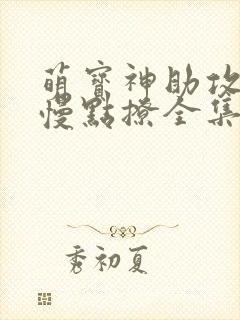 萌寶神助攻
慢點撩全集
秀初夏